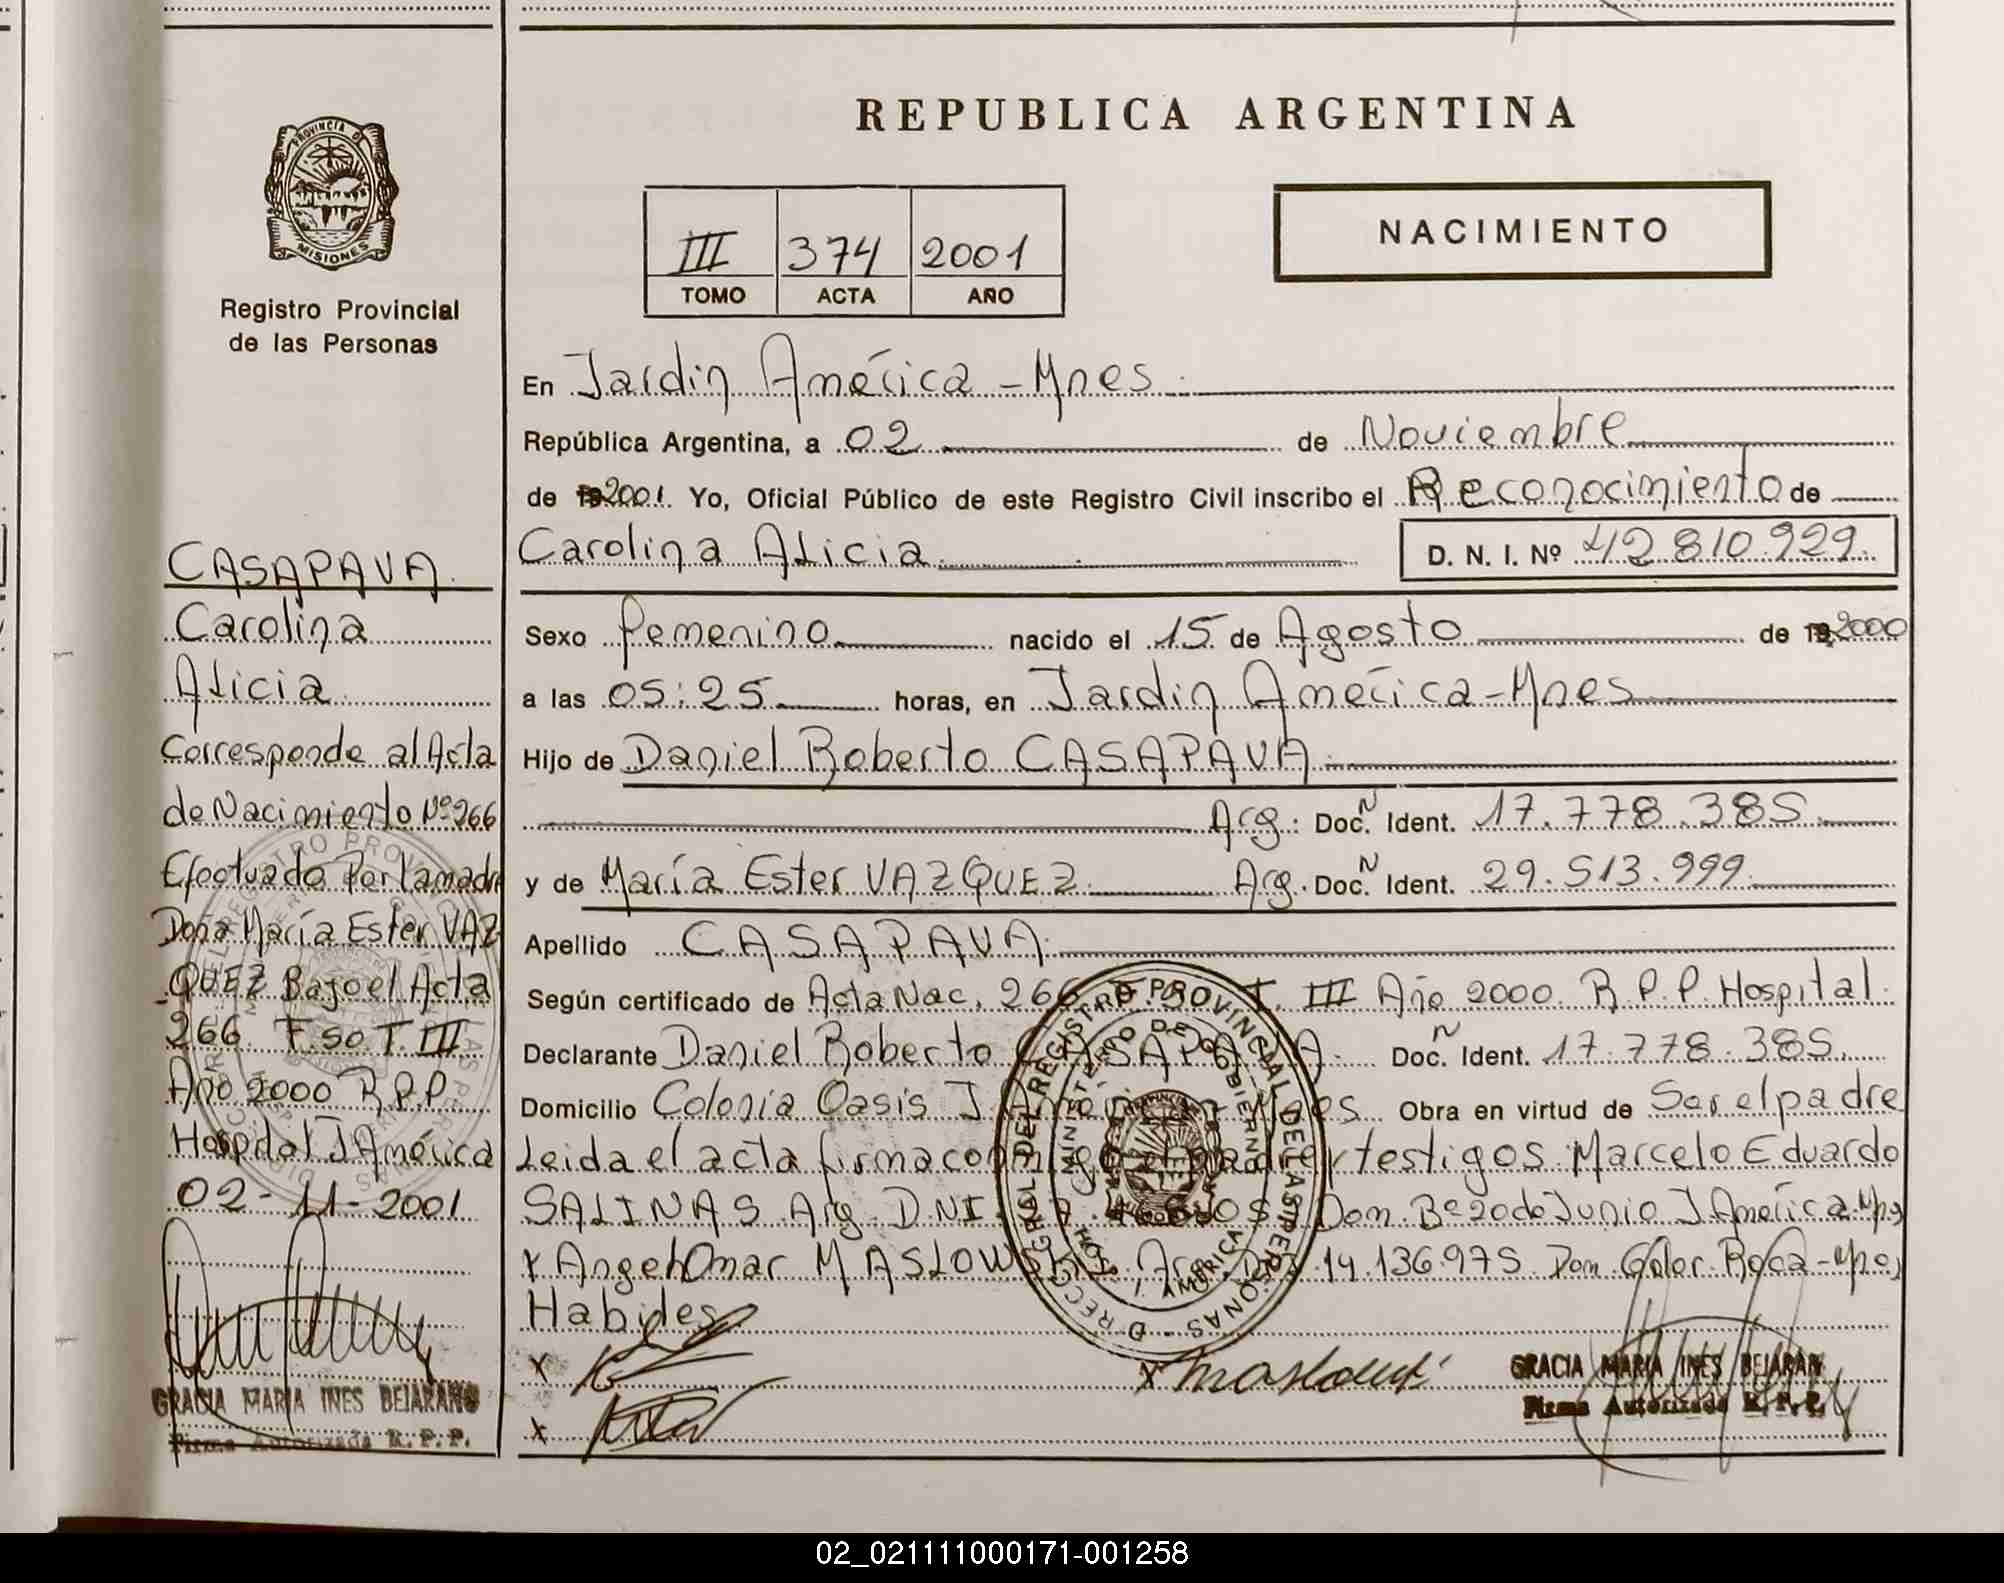 REPUBLICA ARGENTINA
PROVINCIA DE MISIONES
Registro Provincial
de las Personas
III 374 2001
TOMO ACTA AÑO
NACIMIENTO
CASAPAVA
Carolina
Alicia
Corresponde al Acta
de Nacimiento Nº 266
Efectuada Por la madre
Doña María Ester VAZ
QUEZ Bajo el Acta
266 F.50 T. III
Año 2000 R.P.P.
Hospital J América
02-11-2001
GRACIA MARIA INES BEJARANO
Firma Autorizada R. P. P.
En Jardin América - Mnes.
República Argentina, a 02 de Noviembre
de 2001. Yo, Oficial Público de este Registro Civil inscribo el Reconocimiento de
Carolina Alicia D. N. I. Nº 42.810.929.
Sexo femenino nacido el 15 de Agosto de 2000
a las 05:25 horas, en Jardin América - Mnes
Hijo de Daniel Roberto CASAPAVA
Arg. Doc. Ñ Ident. 17.778.385.
y de María Ester VAZQUEZ Arg. Doc. Ñ Ident. 29.513.999.
Apellido CASAPAVA.
Según certificado de Acta Nac. 266 T. III Año 2000 R.P.P. Hospital.
Declarante Daniel Roberto CASAPAVA. Doc. Ñ Ident. 17.778.385.
Domicilio Colonia Oasis J América - Mnes. Obra en virtud de Ser el padre
Leida el acta firma conmigo el padre y testigos Marcelo Eduardo
SALINAS Arg. DNI. Dom. Bº 20 de Junio J América-Mnes
y Angel Omar MASLOWSKI Arg. DNI 14.136.975 Dom. Gdor. Roca-Mnes
Habides
DIRECC. GRAL DEL REGISTRO PROVINCIAL DE LAS PERSONAS
MINISTERIO DE GOBIERNO
HOSP. J. AMERICA
x
x Maslowski
x
GRACIA MARIA INES BEJARAN
Firma Autorizada R. P. P.
02_021111000171-001258